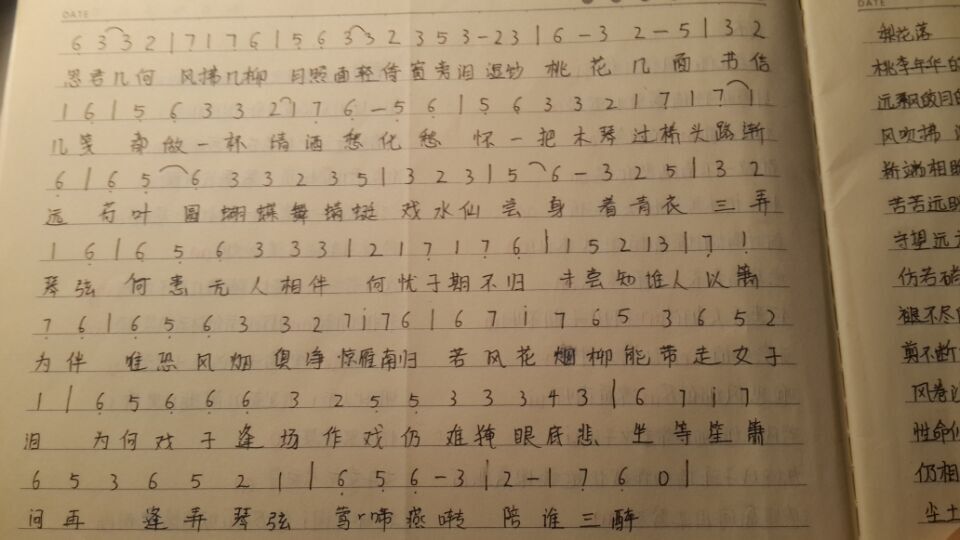 DATE
6 3 3 2 | 7 1 7 6 | 5 6 3 3 2 3 5 3 - 2 3 | 6 - 3 2 - 5 | 3 2
思君几何 风拂几柳 月照面轻倚窗旁泪湿纱 桃花几面书信
1 6 | 5 6 3 3 2 1 7 6 - 5 6 | 5 6 3 3 2 1 7 1 7 1
几笺 都做一杯清酒愁化愁 怀一把木琴过桥头路渐
6 | 6 5 6 3 3 2 3 5 | 3 2 3 | 5 6 - 3 2 5 | 3 2
远 荷叶圆蝴蝶舞蜻蜓戏水仙尝身着青衣三弄
1 6 | 6 5 6 3 3 3 | 2 1 7 1 7 6 | 1 5 2 1 3 | 7 1
琴弦 何患无人相伴 何忧子期不归 未尝知谁人以箫
7 6 | 6 5 6 3 3 2 7 i 7 6 | 6 7 i 7 6 5 3 6 5 2
为伴 唯恐风烟俱净惊雁南归 若风花烟柳能带走女子
1 | 6 5 6 6 6 3 2 5 5 3 3 3 4 3 | 6 7 i 7
泪 为何戏子逢场作戏仍难掩眼底悲 坐等笙箫
6 5 3 6 5 2 1 | 6 5 6 - 3 | 2 - 1 7 6 0 |
问再 逢弄琴弦 莺啼燕啭 陪谁三醉
DATE
梨花落
桃李年华的
远飘
风吹拂
苦苦远
守望远
仿若
褪不尽
剪不断
风卷
性命
仍相
尘土